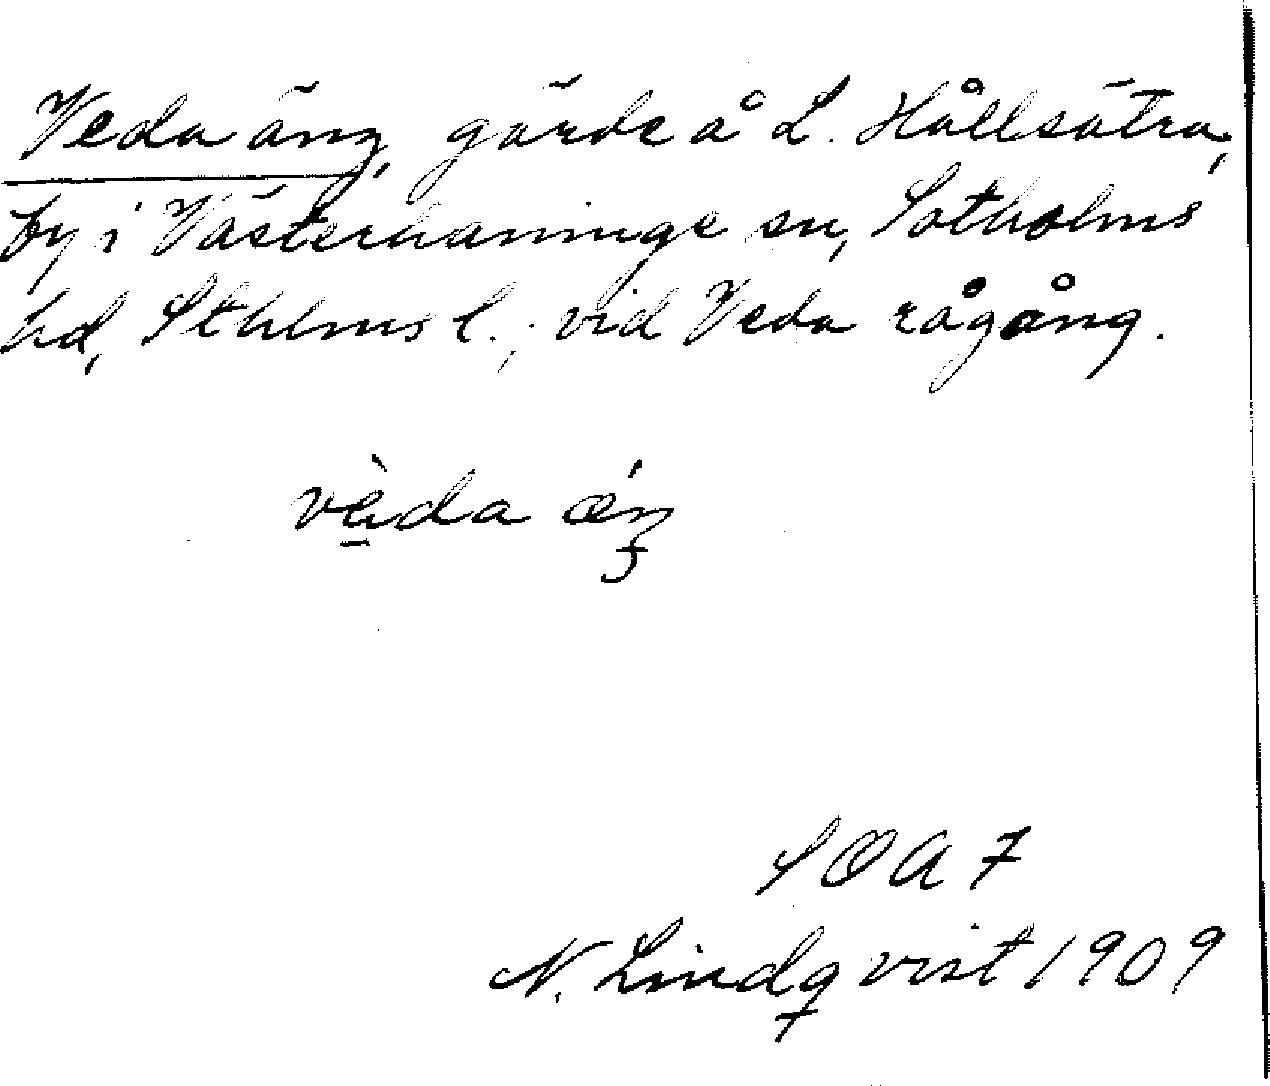 Veda äng, gärde å L. Hållsätra,
by i Västerhaninge sn, Sotholms
hd, Sthlms l.; vid Veda rågång.
vèda ǽŋ
SOA 7
N. Lindqvist 1909